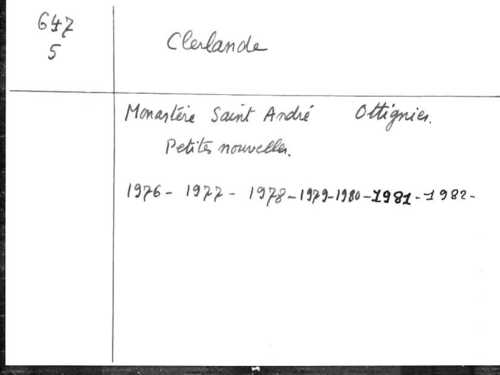 647
5
Clerlande
Monastère Saint André Ottignies.
Petites nouvelles.
1976 - 1977 - 1978 - 1979 - 1980 - 1981 - 1982 -